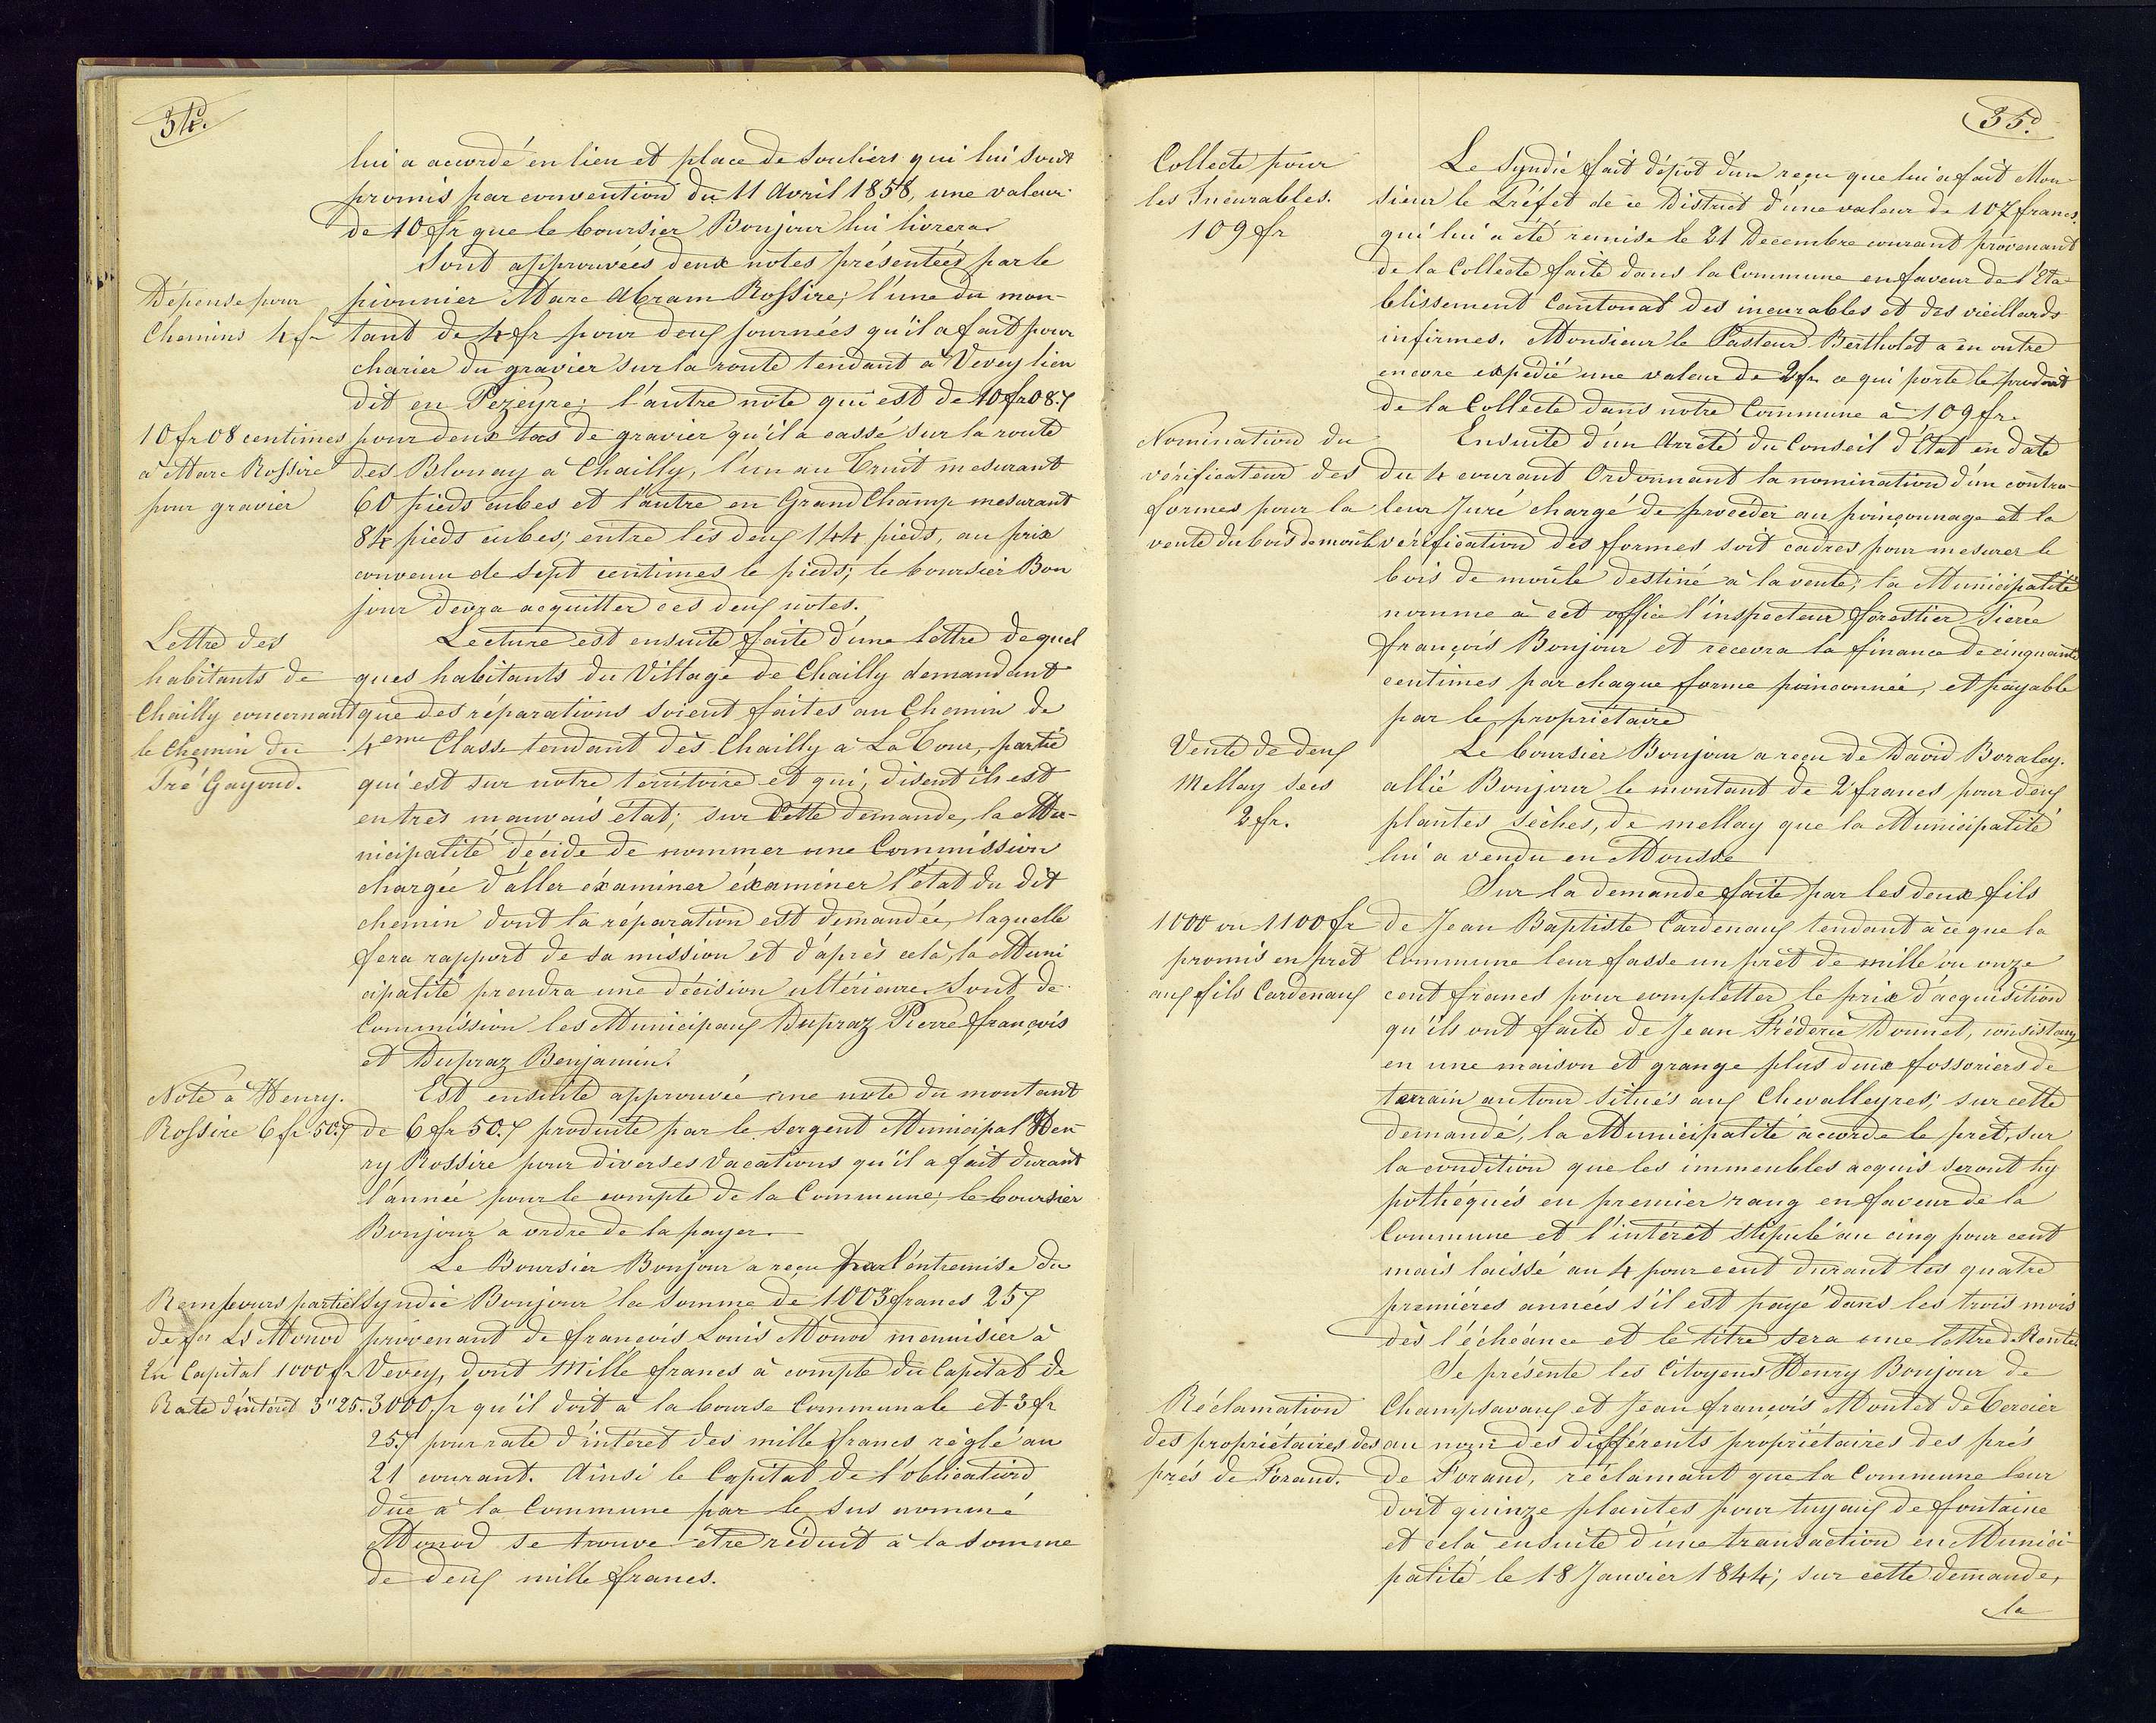 34.
lui a accordé en lieu et place de souliers qui lui sont
promis par convention du 11 Avril 1858, une valeur
de 10 fr que le boursier Bonjour lui livrera
Sont approuvées deux notes présentées par le
Dépense pour
Chemins 4 fr
pionnier Marc Abram Rossire; l'une du mon-
tant de 4 fr pour deux journées qu'il a fait pour
charier du gravier sur la route tendant à Vevey lieu
dit en Pezeyre; l'autre note qui est de 10 fr 08
10 fr 08 centimes
à Marc Rossire
pour gravier
pour deux tas de gravier qu'il a cassé sur la route
des Blonay à Chailly, l'un au Truit mesurant
60 pieds cubes et l'autre en Grand Champ mesurant
84 pieds cubes; entre les deux 144 pieds, au prix
convenu de sept centimes le pieds; le boursier Bon
jour devra acquitter ces deux notes.
Lettre des
habitants de
Chailly concernant
le Chemin du
Pré Gayoud.
Lecture est ensuite faite d'une lettre de quel
ques habitants du Village de Chailly demandant
que des réparations soient faites au Chemin de
4eme Classe tendant dès Chailly à La Tour, partie
qui est sur notre territoire et qui, disent ils est
en très mauvais état; sur cette demande, la Mu-
nicipalité décide de nommer une Commission
chargée d'aller éxaminer éxaminer l'état du dit
chemin dont la réparation est demandée, laquelle
fera rapport de sa mission et d'après celà, la Muni
cipalité prendra une décision ultérieure. Sont de
Commission les Municipaux Dupraz Pierre françois
et Dupraz Benjamin.
Note à Henry.
Rossire 6 fr 50.
Est ensuite approuvée une note du montant
de 6 fr 50. produite par le sergent Municipal Hen
ry Rossire pour diverses vacations qu'il a fait durant
l'année pour le compte de la Commune; le boursier
Bonjour a ordre de la payer.
Le Boursier Bonjour a reçu par l'entremise du
Rempours partiel
de fs Ls Monod
En Capital 1000 fr
Rate d'intérêt 3" 25.
Syndic Bonjour la somme de 1003 francs 25
provenant de françois Louis Monod menuisier à
Vevey, dont Mille francs à compte du Capital de
3000 fr qu'il doit à la bourse Communale et 3 fr
25. pour rate d'intérêt des mille francs réglé au
21 courant. Ainsi le Capital de l'obligation
due à la Commune par le sus nommé
Monod se trouve être réduit à la somme
de deux mille francs.
35.
Collecte pour
les Incurables.
109 fr
Le Syndic fait dépôt d'un reçu que lui a fait Mon-
sieur le Préfet de ce District d'une valeur de 107 francs.
qui lui a été remise le 21 Decembre courant provenant
de la Collecte faite dans la Commune en faveur de l'Eta-
blissement Cantonal des incurables et des vieillards
infirmes. Monsieur le Pasteur Bertholet a en outre
encore expédié une valeur de 2 fr ce qui porte le produit
de la Collecte dans notre Commune à 109 fr.
Nomination du
vérificateur des
formes pour la
vente du bois de moûle
Ensuite d'un Arrêté du Conseil d'Etat en date
du 4 courant Ordonnant la nomination d'un contro-
leur Juré chargé de procéder au poinçonnage et la
vérification des formes soit cadres pour mesurer le
bois de moûle destiné à la vente; la Municipalité
nomme à cet office l'inspecteur forestier Pierre
françois Bonjour et recevra la finance de cinquante
centimes par chaque forme poinconnée, et payable
par le propriétaire
Vente de deux
Mellay secs
2 fr.
Le boursier Bonjour a reçu de David Boraley.
allié Bonjour le montant de 2 francs pour deux
plantes sèches, de mellay que la Municipalité
lui a vendu en Mousse
Sur la demande faite par les deux fils
1000 ou 1100 fr
promis en prêt
aux fils Cardenaux
de Jean Baptiste Cardenaux tendant à ce que la
Commune leur fasse un prêt de mille ou onze
cent francs pour completter le prix d'acquisition
qu'ils ont faite de Jean Fréderic Donnet, consistant
en une maison et grange plus deux fossoriers de
terrain autour situés aux Chevalleyres; sur cette
demande, la Municipalité accorde le prêt, sur
la condition que les immeubles acquis seront hy
pothéqués en premier rang en faveur de la
Commune et l'intérêt stipulé au cinq pour cent
mais laissé au 4 pour cent durant les quatre
premières années s'il est payé dans les trois mois
dès l'échéance et le titre sera une lettre de Rente.
Se présente les Citoyens Henry Bonjour de
Réclamation
des propriétaires des
prés de Forand.
Champsavaux et Jean françois Montet de Cercier
au nom des différents propriétaires des prés
de Forand, réclamant que la Commune leur
doit quinze plantes pour tuyaux de fontaine
et celà ensuite d'une transaction en Munici-
palité le 18 Janvier 1844; sur cette demande,
la